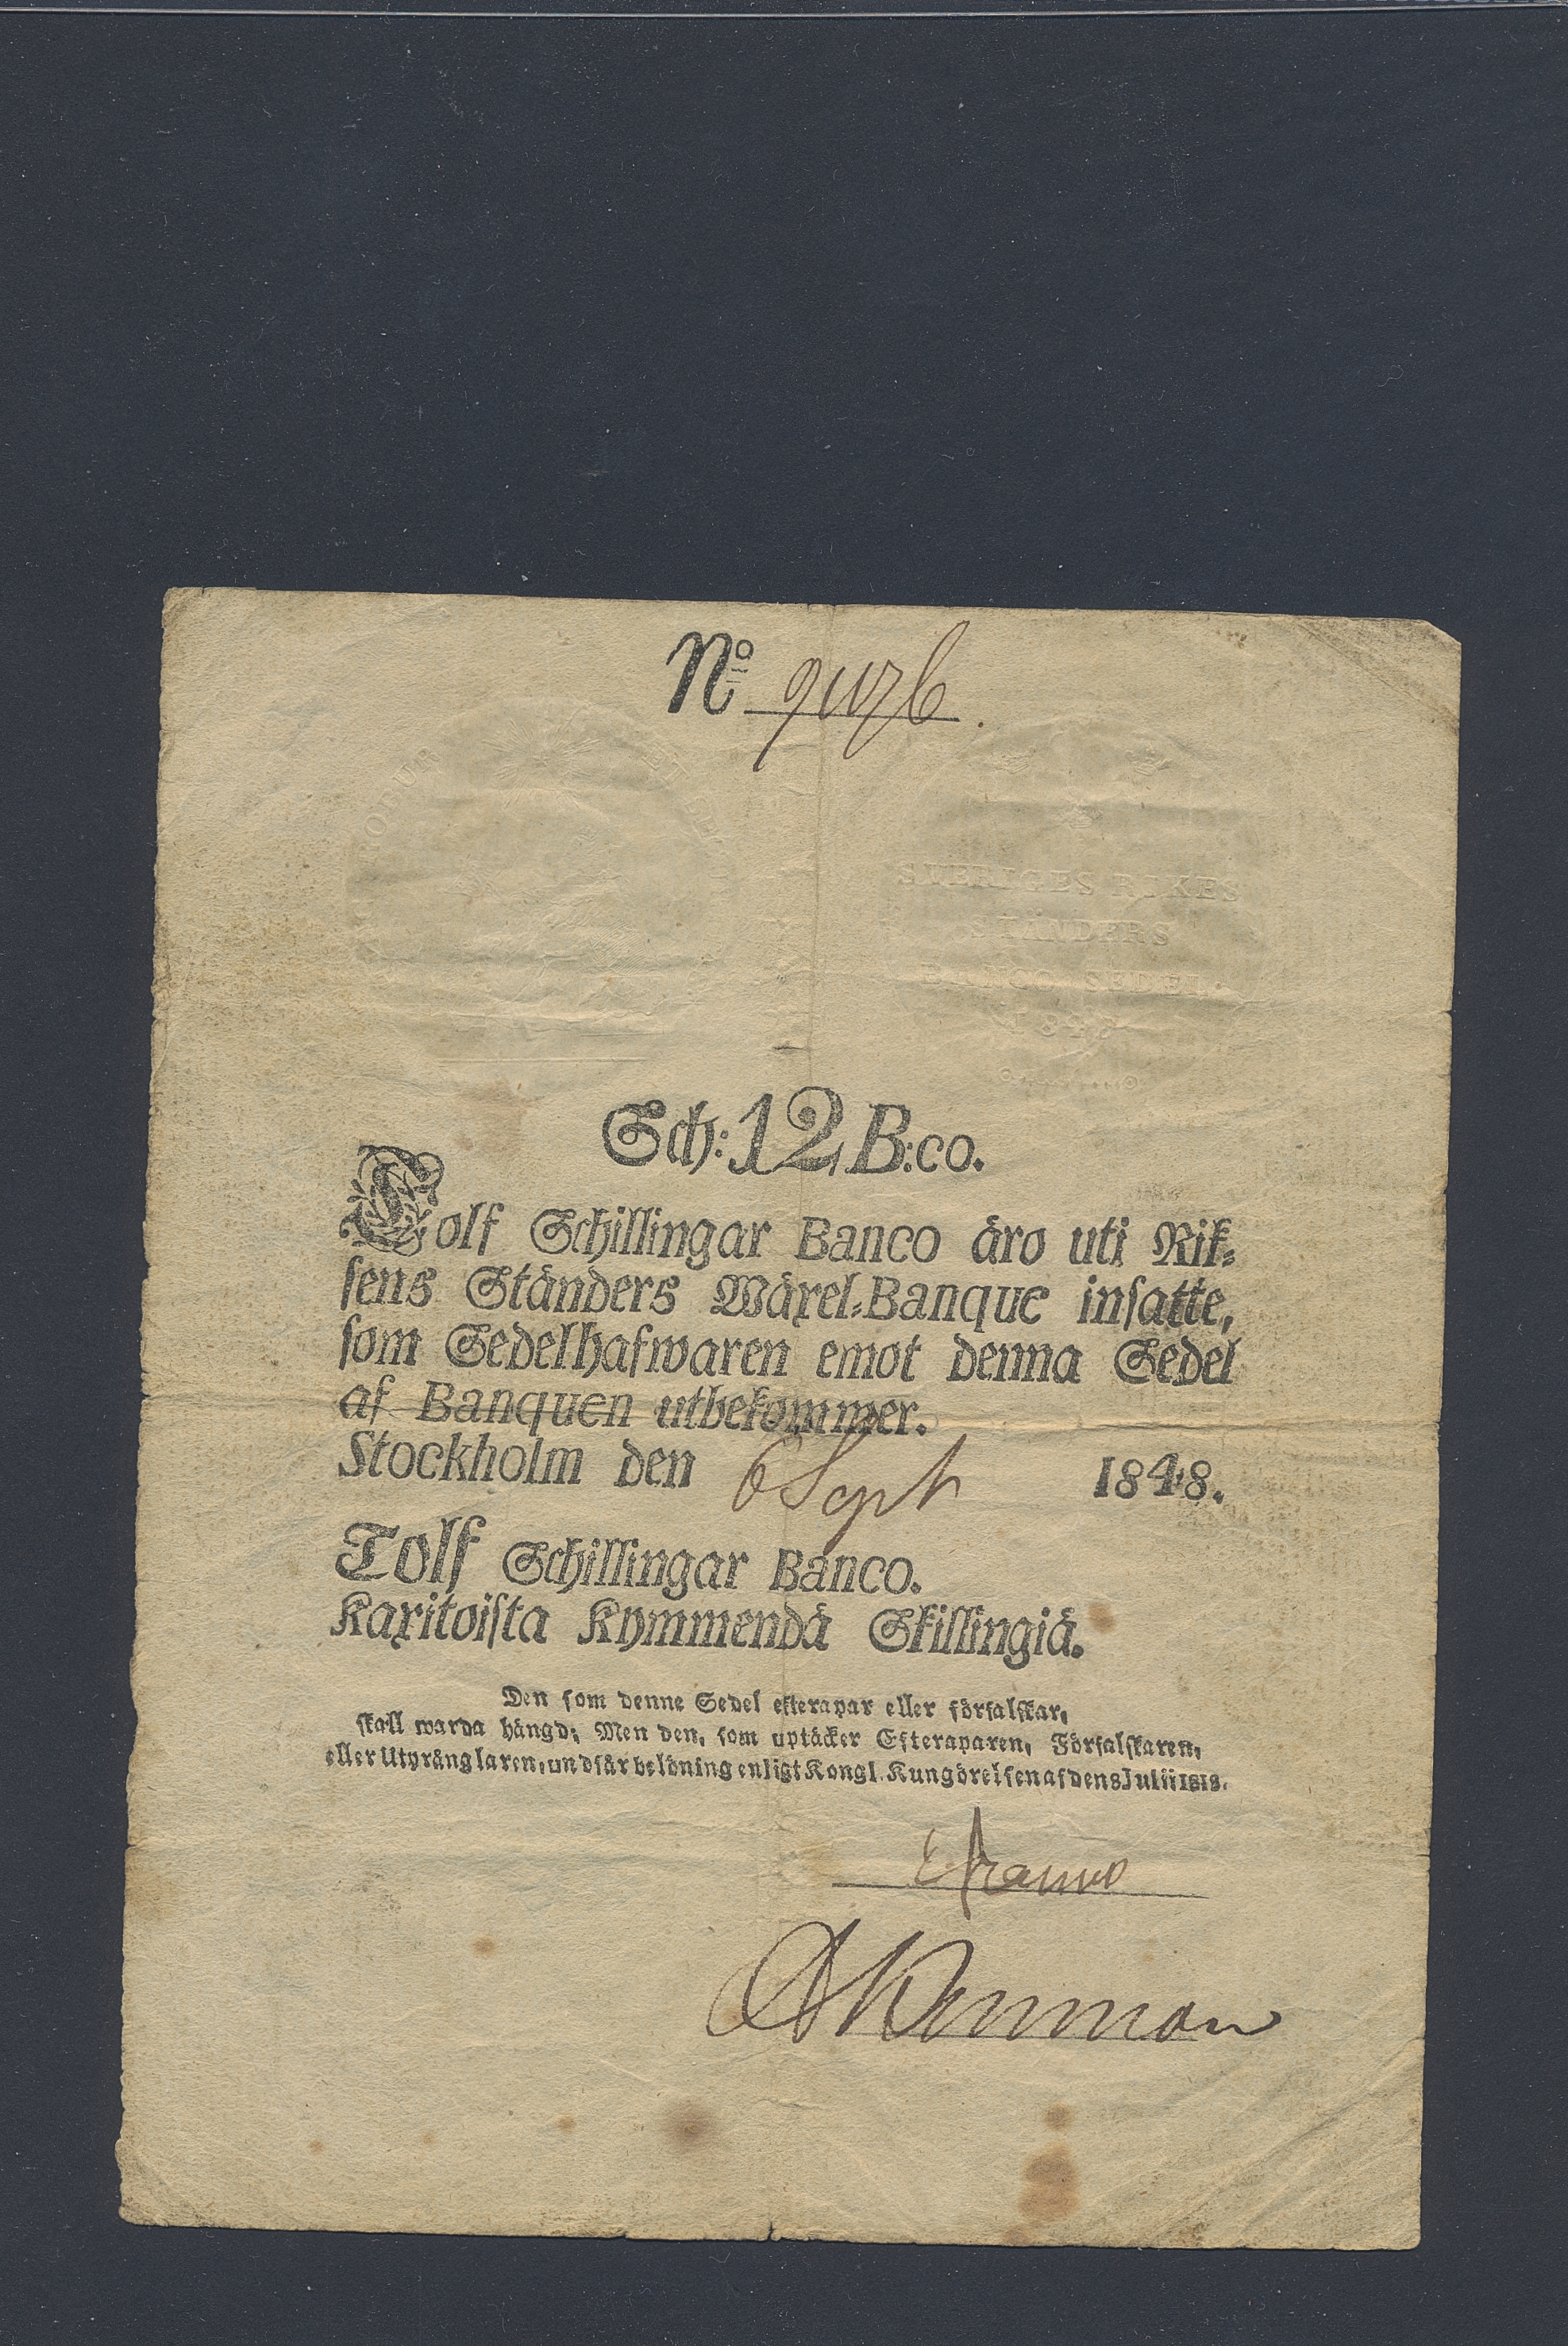 No
SWERIGES RIKES
STÄNDERS
BANCO SEDEL.
1848
Sch: 12 B:co.
Tolf Schillingar Banco äro uti Rik=
sens Ständers Wäxel=Banque insatte,
som Sedelhafwaren emot denna Sedel
af Banquen utbekommer.
Stockholm den 6 Sept 1848.
Tolf Schillingar Banco.
Kaxitoista Kymmendä Skillingiä.
Den som denne Sedel efterapar eller förfalskar,
skall warda hängd; Men den, som uptäcker Efteraparen, Förfalskaren,
eller Utprånglaren, undfår belöning enligt Kongl. Kungörelsen af den 8 Julii 1818.